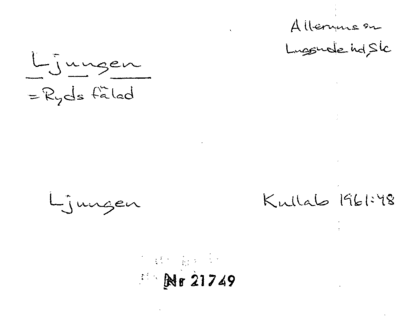 Allerums sn
Luggude hd, Sk
Ljungen
= Ryds fälad
Ljungen
Kullab 1961:48
Nr 21749